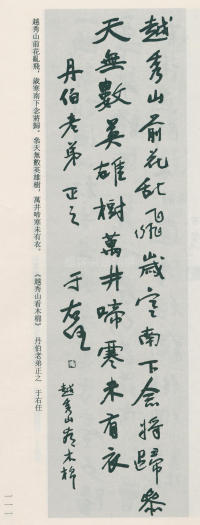 越秀山前花亂飛歲寒南下念將歸參
天無數英雄樹萬井啼寒未有衣
丹伯老弟正之
于右任
越秀山看木棉
越秀山前花亂飛,歲寒南下念將歸。參天無數英雄樹,萬井啼寒未有衣。
《越秀山看木棉》 丹伯老弟正之 于右任
一一一